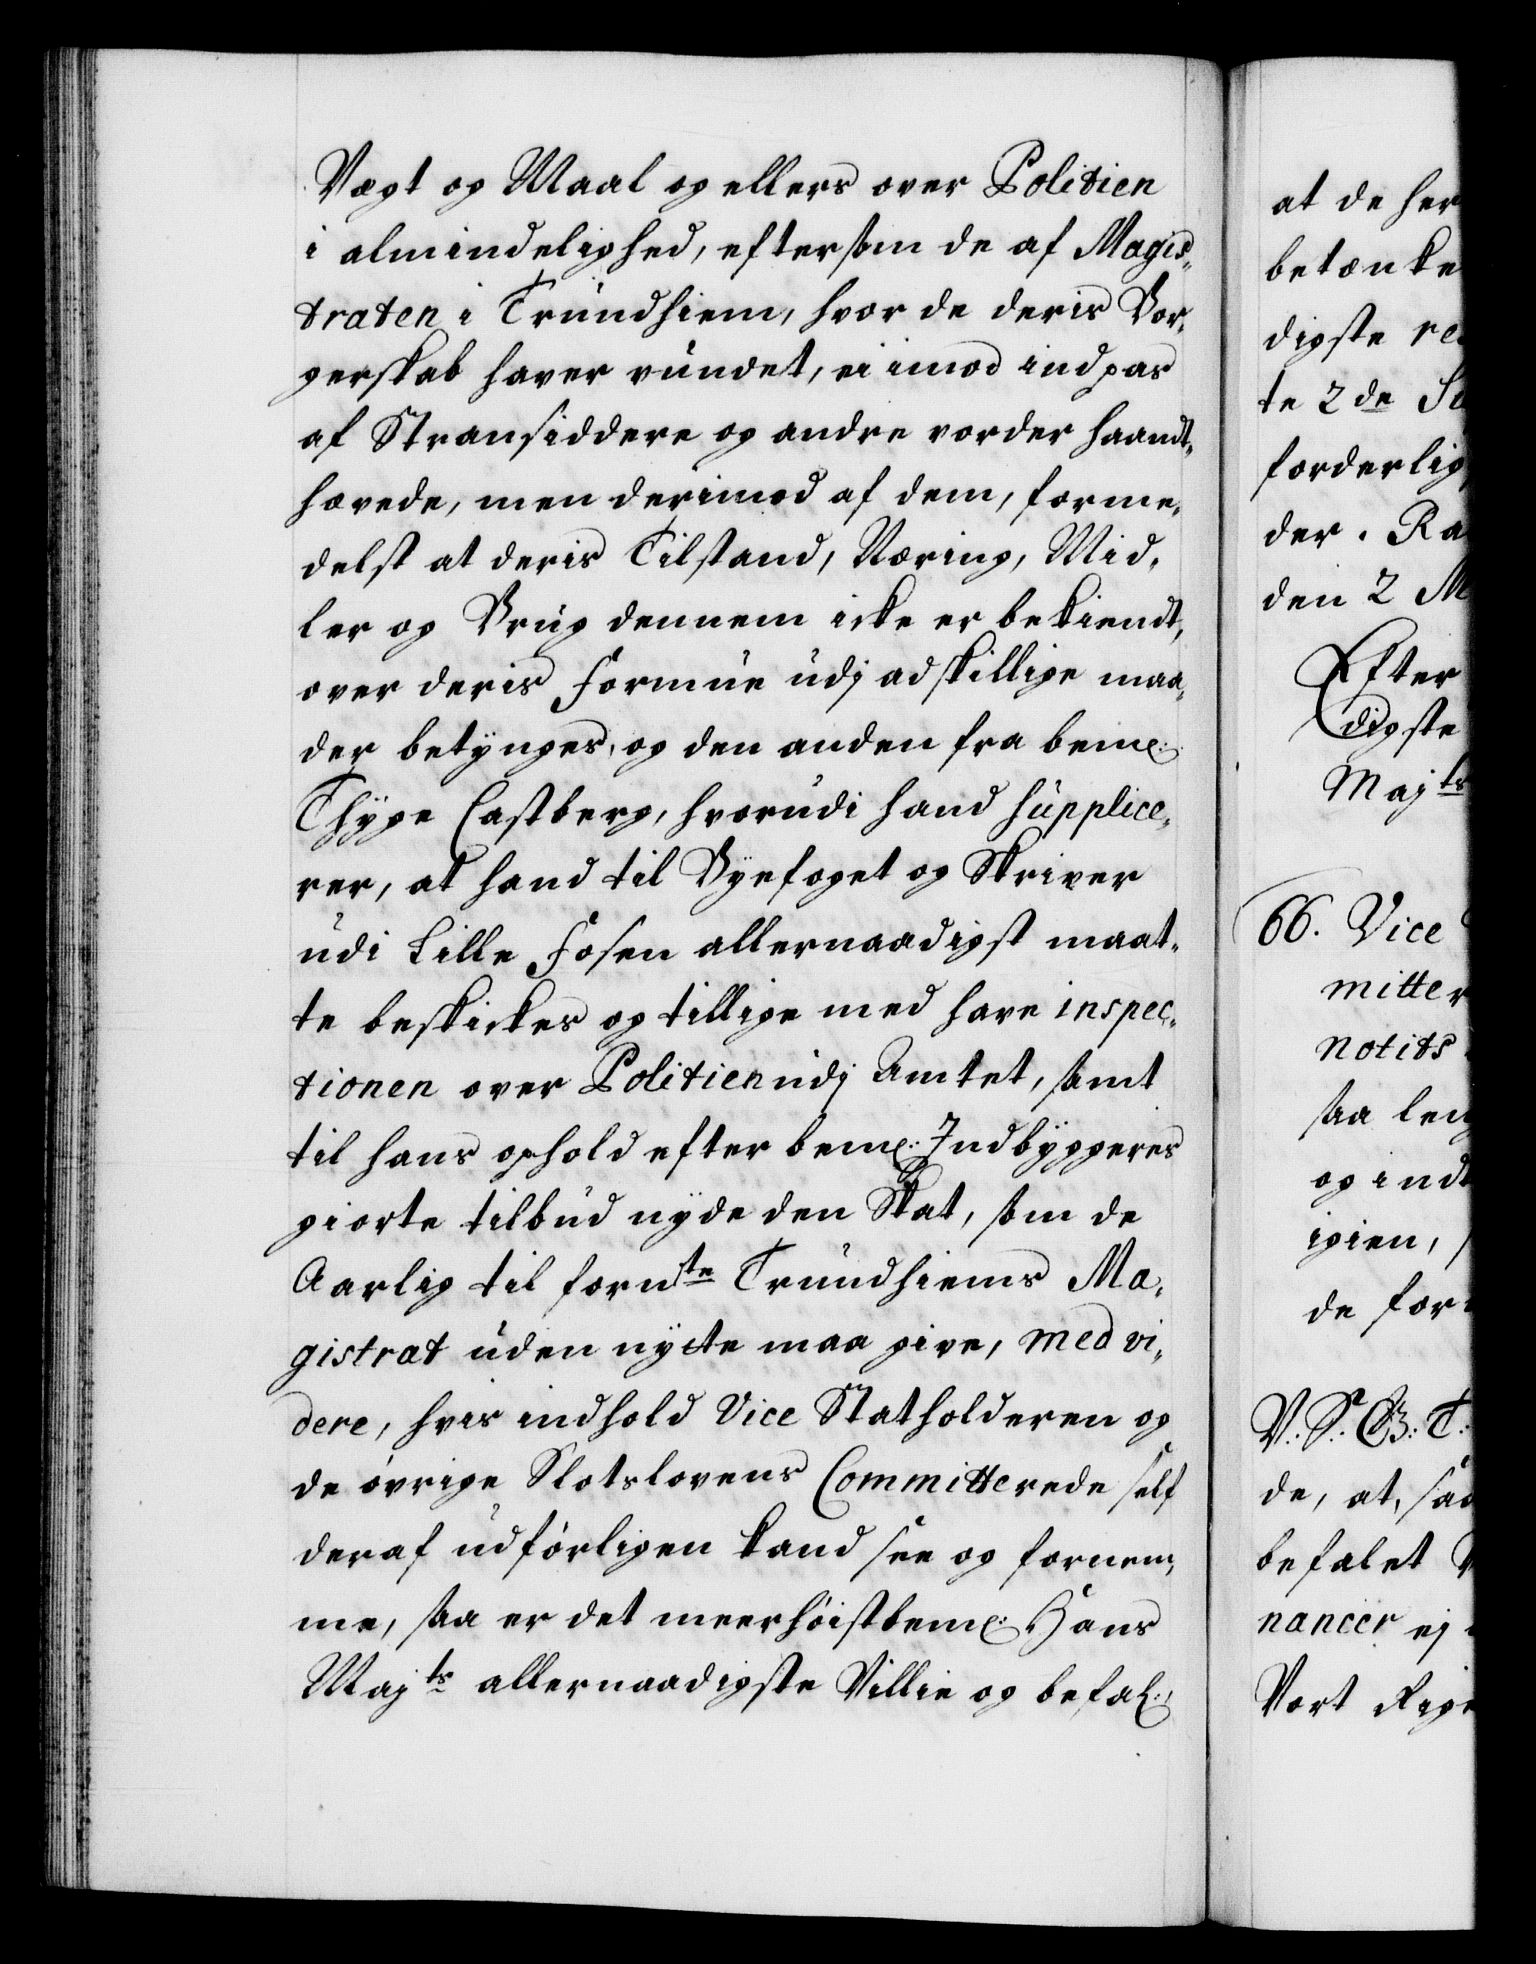 Vægt og Maal og ellers over Politien
i almindelighed, eftersom de af Magis„
traten i Trundhiem, hvor de deris Bor„
gerskab haver vundet, ei imod indpas
af Stransiddere og andre vorder haandt„
hævede, men derimod af dem, forme„
delst at deris Tilstand, Næring, Mid„
ler og Brug dennem icke er bekiendt,
over deris formue udj adskillige maa„
der betynges, og den anden fra bem:te
Thyge Castberg, hvorudi hand supplice„
rer, at hand til Byefoget og Skriver
udi Lille fosen allernaadigst maat„
te beskickes og tillige med have inspec„
tionen over Politien udj Amtet, samt
til hans ophold efter bem:te Indbyggeres
giorte tilbud nyde den Skat, som de
Aarlig til fornte Trundhiems Ma„
gistrat uden nytte maa give, med vi„
dere, hvis indhold Vice Statholderen og
de övrige Slotslovens Committerede self
deraf udförligen kand see og fornem„
me, saa er det meerhöistbem:te Hans
Majts allernaadigste Villie og befal:,
at de her
betænke
digste
te 2de
forderlig
der. Ra
den 2 M
Efter
digste
Majts
66. Vice
mitter
notits
saa leng
og indt
igien,
de for
V: S: G: T:
de, at, saa
befalet
nancer ej
Vort Rige